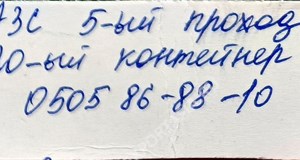 АЗС 5-ый проход
0-ый контейнер
0505 86-88-10